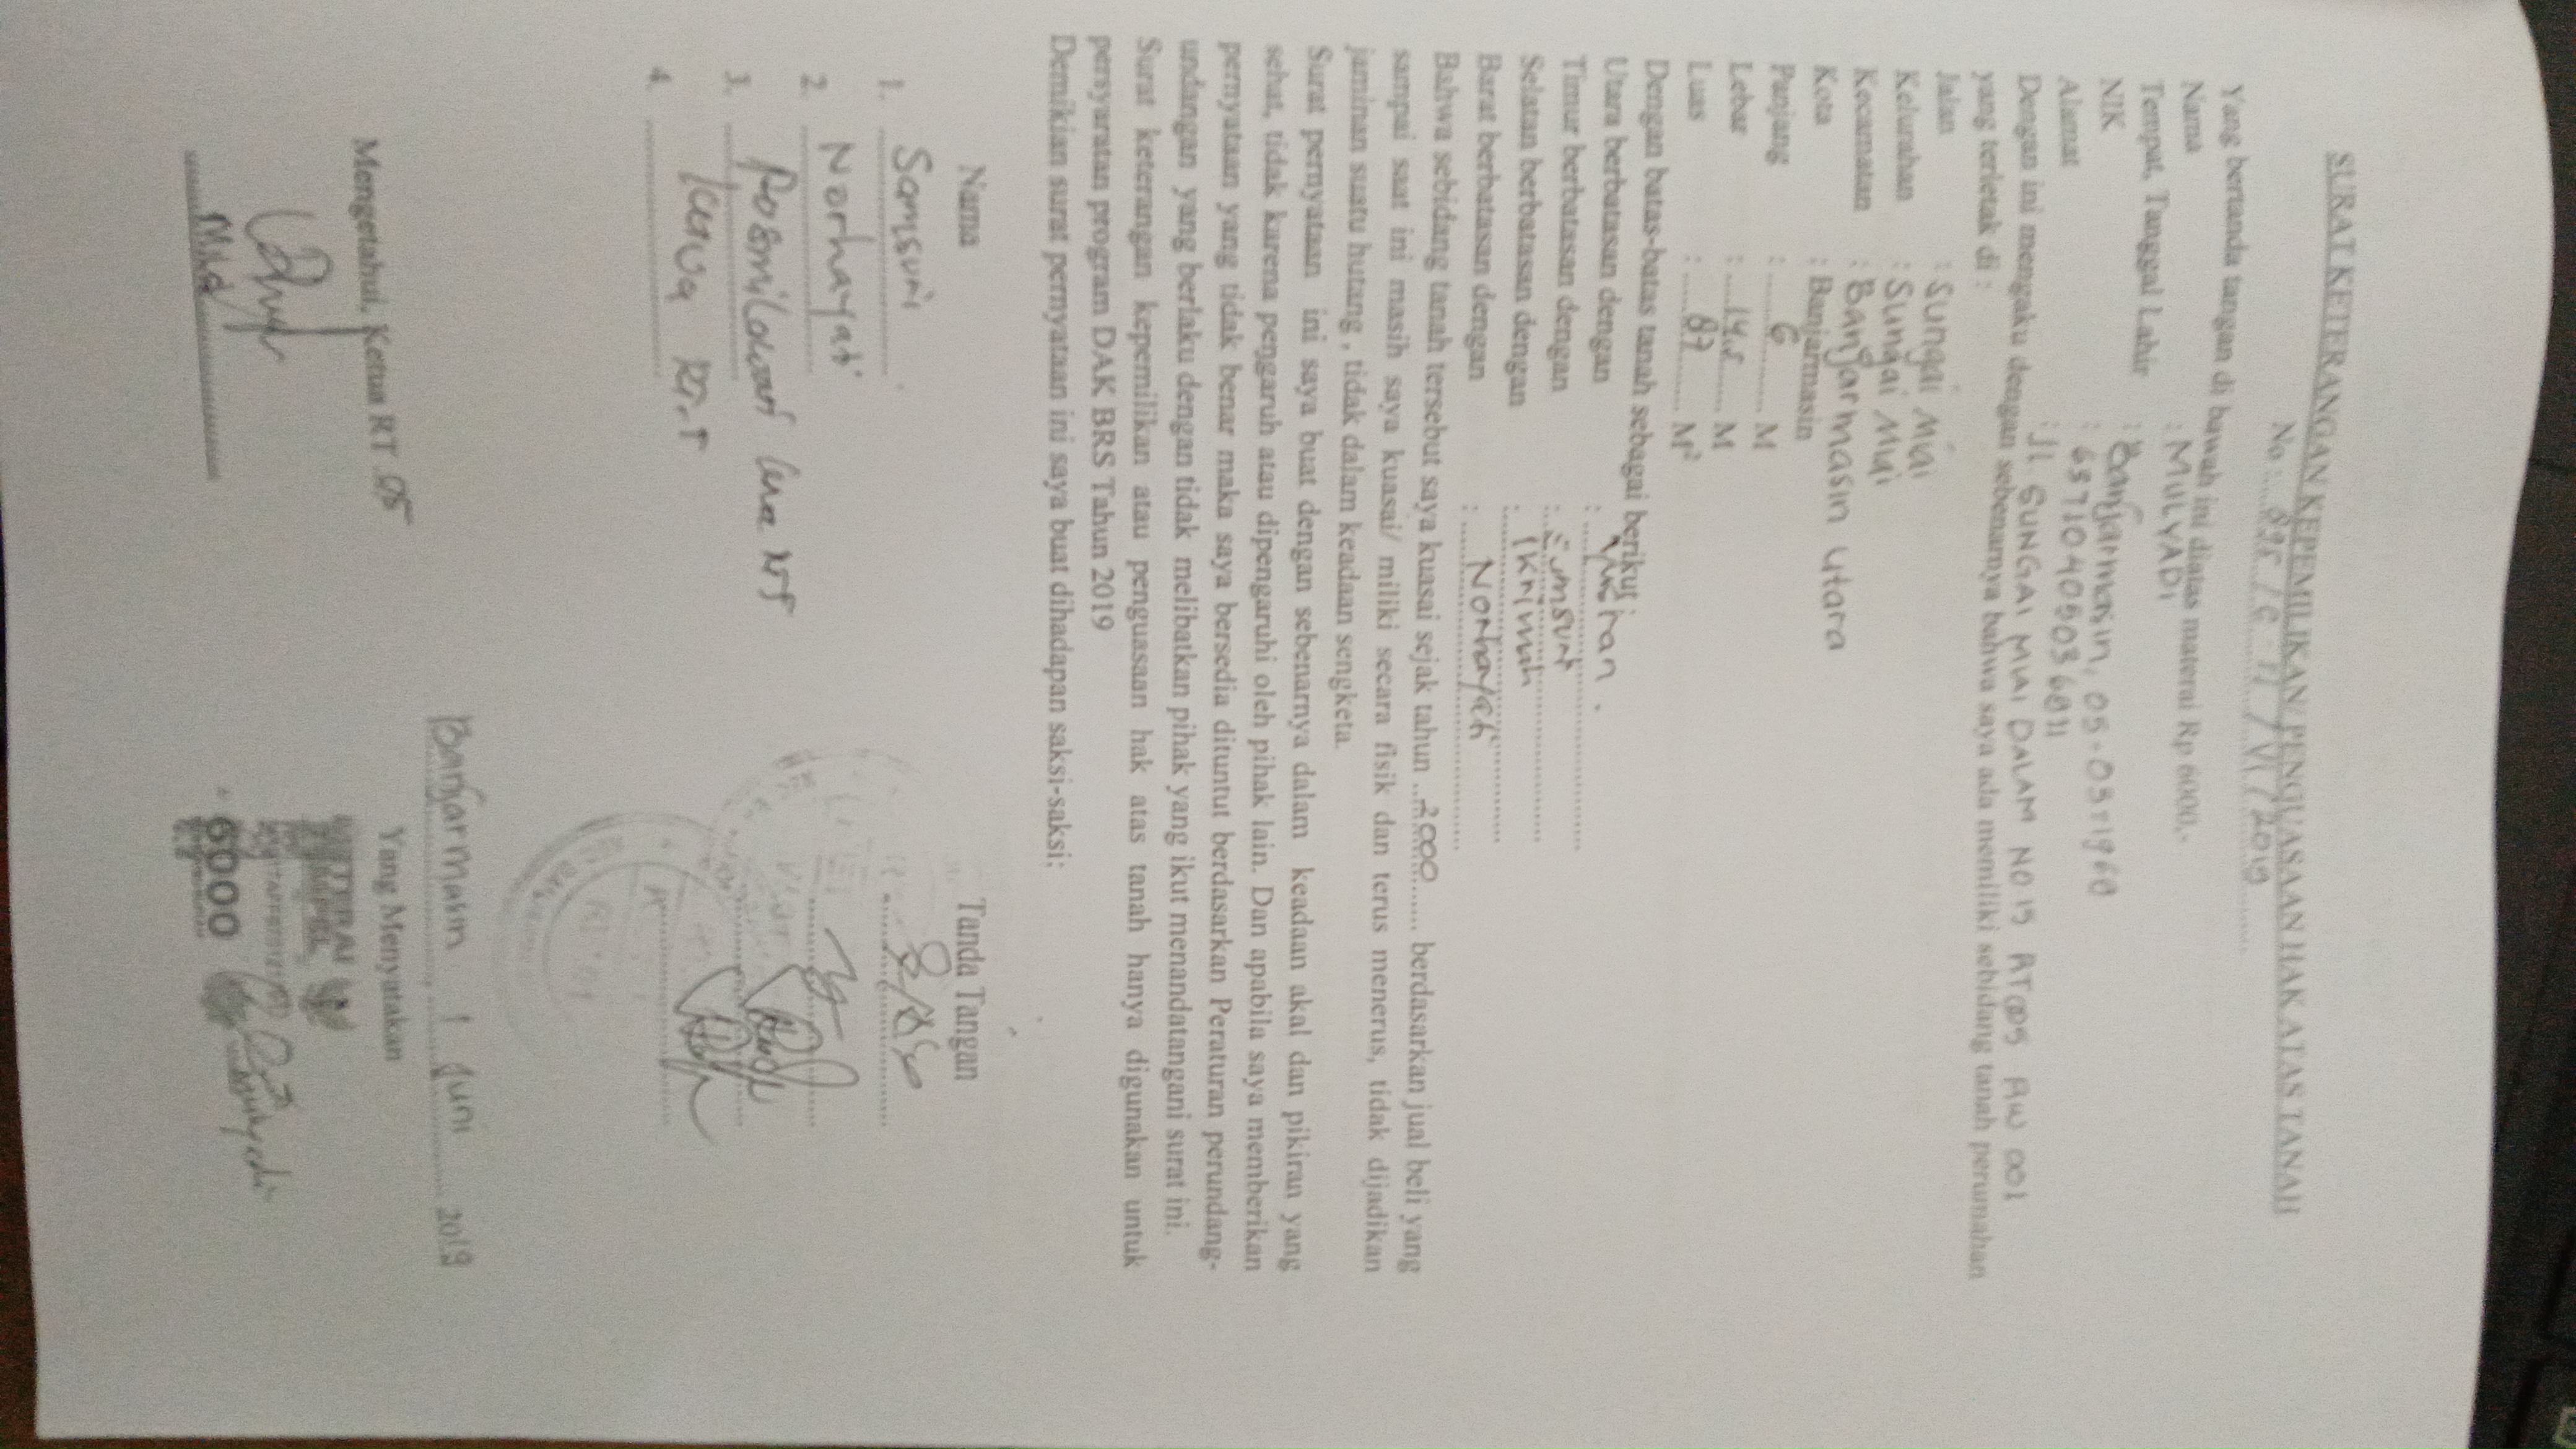 SURAT KETERANGAN KEPEMILIKAN/ PENGUASAAN HAK ATAS TANAH
No : / VI / 2019
Yang bertanda tangan di bawah ini diatas materai Rp 6000,-
Nama : MULYADI
Tempat, Tanggal Lahir : Banjarmasin, 05-03-1968
NIK :
Alamat : Jl. SUNGAI MIAI DALAM NO 15 RT 005 RW 001
Dengan ini mengaku dengan sebenarnya bahwa saya ada memiliki sebidang tanah perumahan
yang terletak di :
Jalan : Sungai Miai
Kelurahan : Sungai Miai
Kecamatan : Banjarmasin Utara
Kota : Banjarmasin
Panjang : 6 M
Lebar : 14.5 M
Luas : 87 M²
Dengan batas-batas tanah sebagai berikut
Utara berbatasan dengan :
Timur berbatasan dengan : Samsuri
Selatan berbatasan dengan : Ikrimah
Barat berbatasan dengan : Norhayati
Bahwa sebidang tanah tersebut saya kuasai sejak tahun 2000 berdasarkan jual beli yang
sampai saat ini masih saya kuasai/ miliki secara fisik dan terus menerus, tidak dijadikan
jaminan suatu hutang , tidak dalam keadaan sengketa.
Surat pernyataan ini saya buat dengan sebenarnya dalam keadaan akal dan pikiran yang
sehat, tidak karena pengaruh atau dipengaruhi oleh pihak lain. Dan apabila saya memberikan
pernyataan yang tidak benar maka saya bersedia dituntut berdasarkan Peraturan perundang-
undangan yang berlaku dengan tidak melibatkan pihak yang ikut menandatangani surat ini.
Surat keterangan kepemilikan atau penguasaan hak atas tanah hanya digunakan untuk
persyaratan program DAK BRS Tahun 2019
Demikian surat pernyataan ini saya buat dihadapan saksi-saksi;
Nama Tanda Tangan
1. Samsuri
2. Norhayati
3.
4. Ketua RT
Banjarmasin, 1 Juni 2019
Mengetahui, Ketua RT 05 Yang Menyatakan
METERAI
TEMPEL
6000
Mulyadi